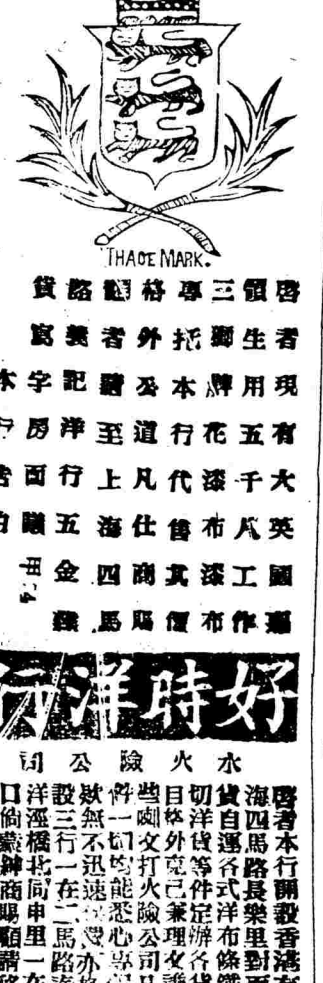 THADE MARK.
啓者現有大英國屬
領生用五千八工作
三獅牌花漆布漆布
專託本行代售其價
格外公道凡仕商賜
顧者請至上海四馬
路養記洋行五金雜
貨寫字房面議
本行告白
好時洋行
水火險公司
啓者本行開設香港
海四馬路長樂里對面
貨自運各式洋布條鐵
切洋貨等件定辦各貨
目格外克已兼理文
些喇文打火險公司
件一切均能悉心
欵無不迅速
設三行一在二馬路
洋涇橋北同申里一在
口倘蒙紳商賜顧請移